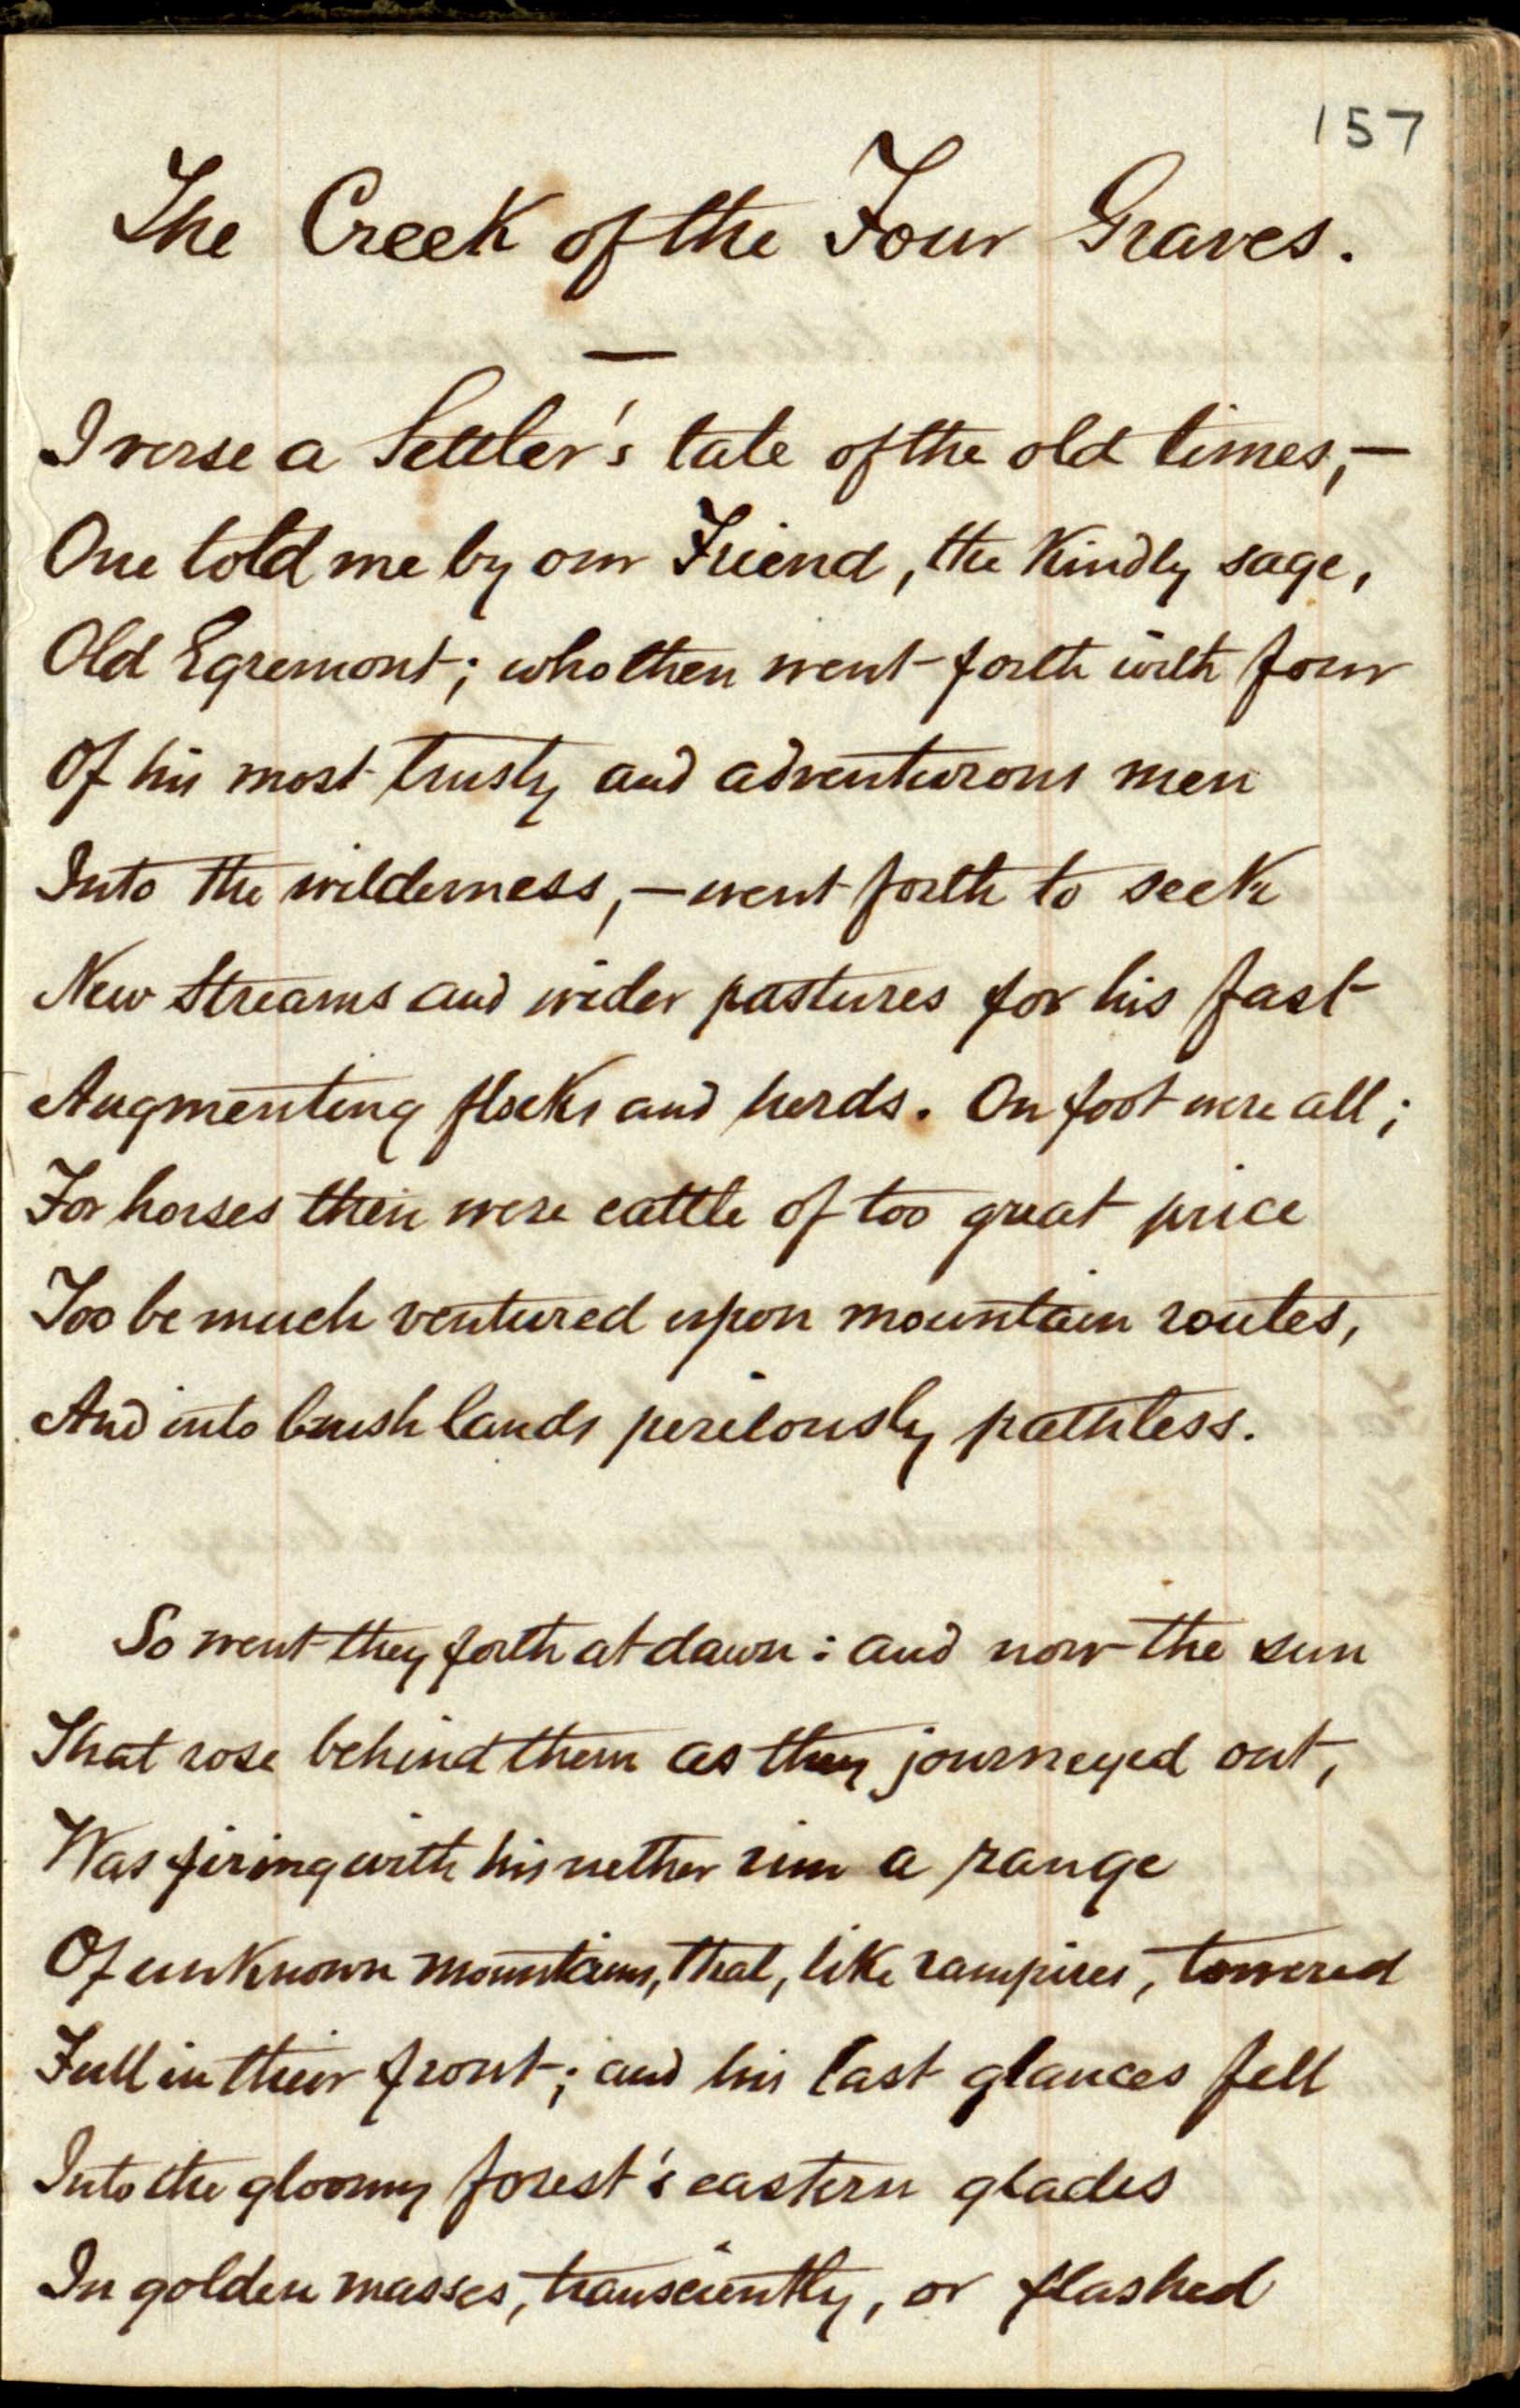 157
The Creek of the Four Graves.
—
I verse a Settler's tale of the old times,—
One told me by our Friend, the Kindly sage,
Old Egremont; who then went forth with four
Of his most trusty and adventurous men
Into the wilderness,—went forth to seek
New Streams and wider pastures for his fast
Augmenting flocks and herds. On foot were all;
For horses then were cattle of too great price
Too be much ventured upon mountain routes,
And into bush lands perilously pathless.
So went they forth at dawn: and now the sun
That rose behind them as they journeyed out,
Was firing with his nether rim a range
Of unknown mountains, that, like rampires, towered
Full in their front; and his last glances fell
Into the gloomy forest's eastern glades
In golden masses, transciently, or flashed